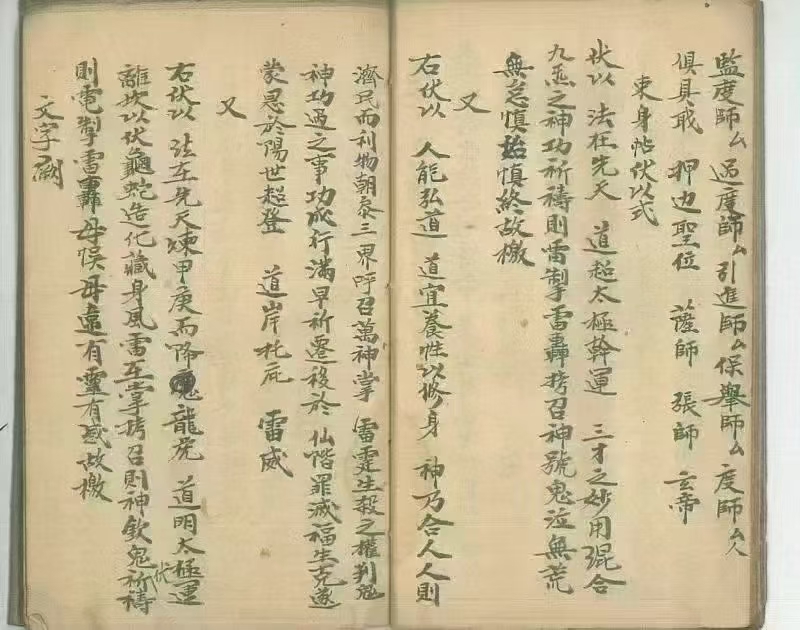 監度師厶 過度師厶 引進師厶 保舉師厶 度師厶人
俱具戢 押边聖位 薩師 張師 玄帝
束身帖伏以式
伏以 法在先天 道超太極幹運 三才之妙用混合
九炁之神功祈禱則雷掣雷轟拷召神號鬼泣無荒
無怠慎始慎終故檄
又
右伏以 人能弘道 道宜養性以修身 神乃合人人則
濟民而利物朝泰三界呼召萬神掌 雷霆生殺之權判鬼
神功過之事功成行滿早祈遷移於 仙階罪滅福生克遂
蒙恩於陽世超登 道岸托庇 雷威
又
右伏以 法在先天煉甲庚而降龍虎 道明太極運
離坎以伏龜蛇造化藏身風雷在掌拷召則神欽鬼伏祈禱
則電掣雷轟毋悞毋違有靈有感故檄
文字闕